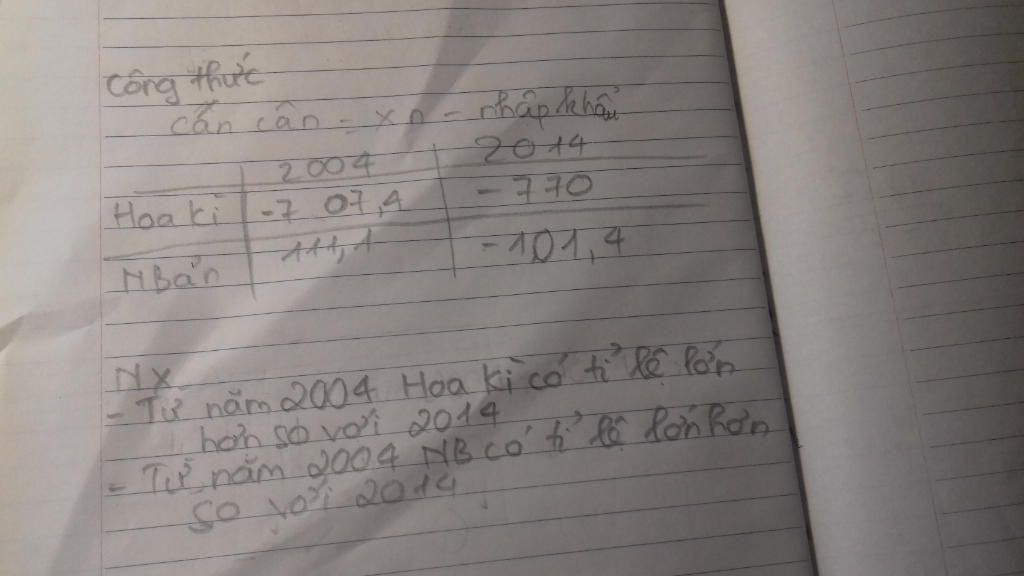 Công thức
cán cân = xn - nhập khẩu
2004 2014
Hoa kì -707,4 -770
NBản 111,1 -101,4
NX
- Từ năm 2004 Hoa kì có tỉ lệ lớn
hơn so với 2014
- Từ năm 2004 NB có tỉ lệ lớn hơn
so với 2014